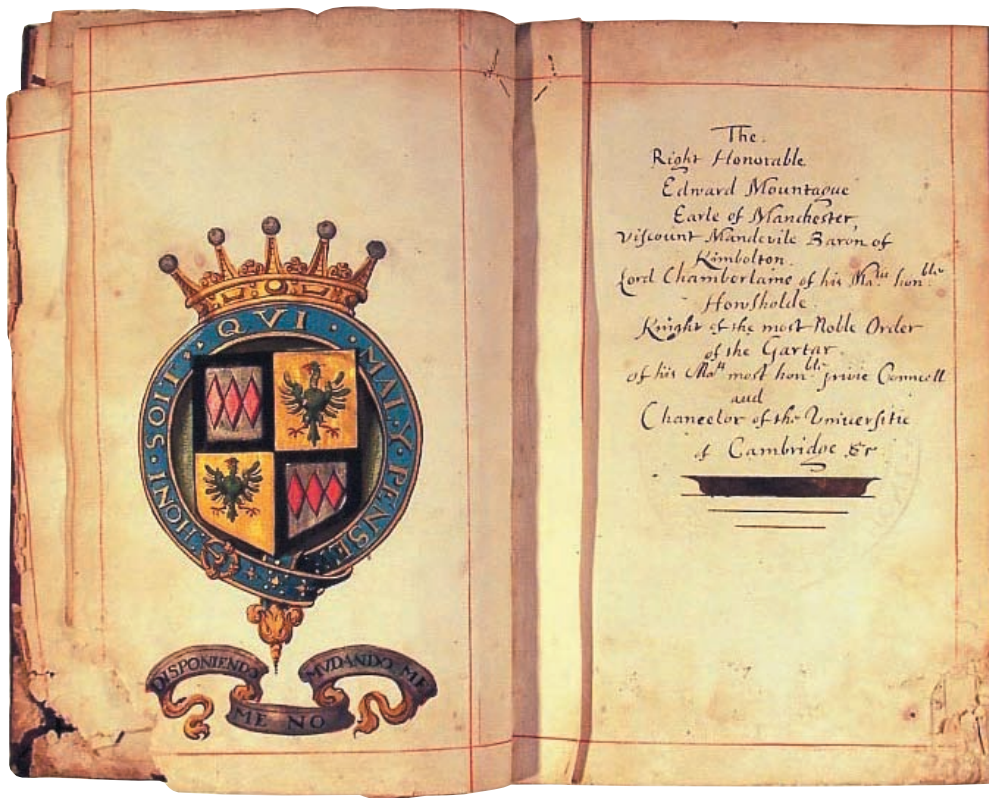 HONI · SOIT · QVI · MAL · Y · PENSE
DISPONIENDO ME NO MVDANDO ME
The.
Right Honorable
Edward Mountague
Earle of Manchester
Viscount Mandevile Baron of
Kimbolton.
Lord Chamberlaine of his Ma.tie hon.ble
Howsholde.
Knight of the most Noble Order
of the Gartar.
of his Ma.ti most hon.ble privie Councell
and
Chancelor of the Universitie
of Cambridge &c